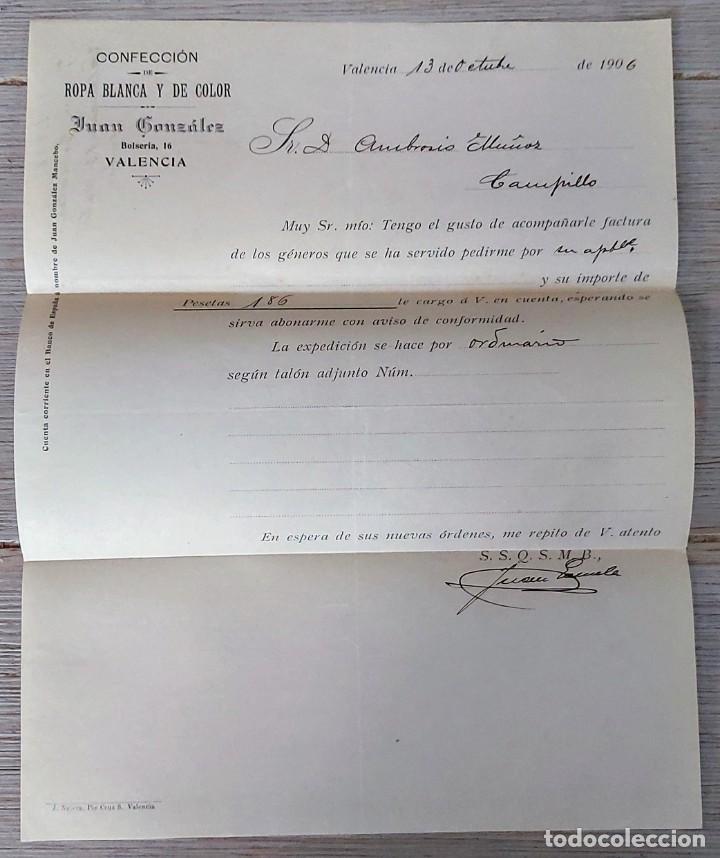 CONFECCIÓN
DE
ROPA BLANCA Y DE COLOR
Juan González
Bolsería, 16
VALENCIA
Valencia 13 de Octubre de 1906
Sr. D Ambrosio Muñoz
Campillo
Muy Sr. mío: Tengo el gusto de acompañarle factura
de los géneros que se ha servido pedirme por su apble.
y su importe de
Pesetas 186 le cargo á V. en cuenta, esperando se
sirva abonarme con aviso de conformidad.
La expedición se hace por ordinario
según talón adjunto Núm.
En espera de sus nuevas órdenes, me repito de V. atento
S. S. Q. S. M. B.,
Juan
Cuenta corriente en el Banco de España á nombre de Juan González Mancebo.
Pie Cruz 8. Valencia
todocoleccion
todocoleccion.net